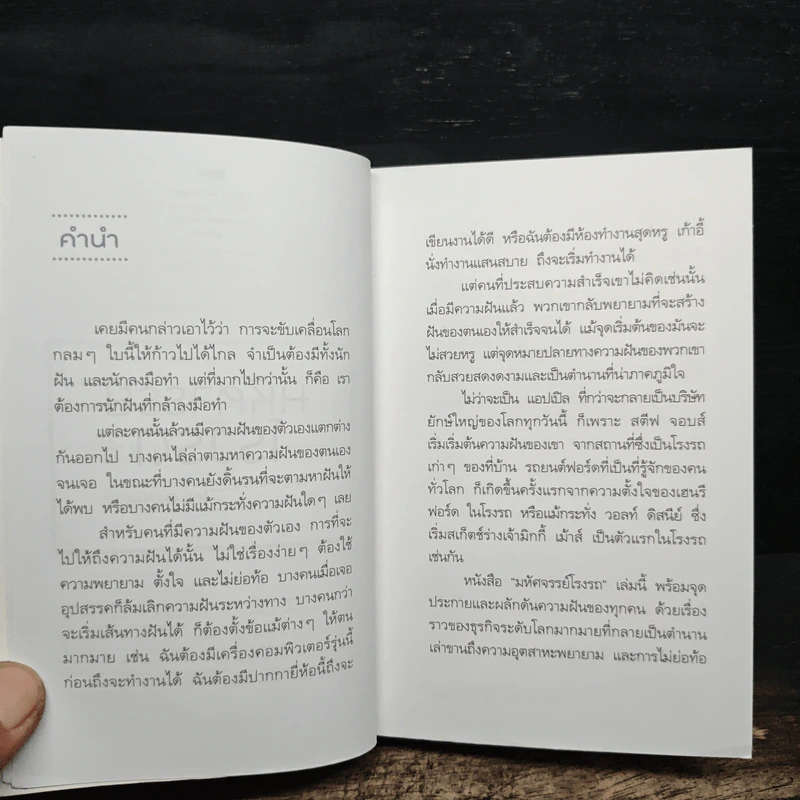 คำนำ
เคยมีคนกล่าวเอาไว้ว่า การจะขับเคลื่อนโลก
กลมๆ ใบนี้ให้ก้าวไปได้ไกล จำเป็นต้องมีทั้งนัก
ฝัน และนักลงมือทำ แต่ที่มากไปกว่านั้น ก็คือ เรา
ต้องการนักฝันที่กล้าลงมือทำ
แต่ละคนนั้นล้วนมีความฝันของตัวเองแตกต่าง
กันออกไป บางคนไล่ล่าตามหาความฝันของตนเอง
จนเจอ ในขณะที่บางคนยังดิ้นรนที่จะตามหาฝันให้
ได้พบ หรือบางคนไม่มีแม้กระทั่งความฝันใดๆ เลย
สำหรับคนที่มีความฝันของตัวเอง การที่จะ
ไปให้ถึงความฝันได้นั้น ไม่ใช่เรื่องง่ายๆ ต้องใช้
ความพยายาม ตั้งใจ และไม่ย่อท้อ บางคนเมื่อเจอ
อุปสรรคก็ล้มเลิกความฝันระหว่างทาง บางคนกว่า
จะเริ่มเส้นทางฝันได้ ก็ต้องตั้งข้อแม้ต่างๆ ให้ตน
มากมาย เช่น ฉันต้องมีเครื่องคอมพิวเตอร์รุ่นนี้
ก่อนถึงจะทำงานได้ ฉันต้องมีปากกายี่ห้อนี้ถึงจะ
เขียนงานได้ดี หรือฉันต้องมีห้องทำงานสุดหรู เก้าอี้
นั่งทำงานแสนสบาย ถึงจะเริ่มทำงานได้
แต่คนที่ประสบความสำเร็จเขาไม่คิดเช่นนั้น
เมื่อมีความฝันแล้ว พวกเขากลับพยายามที่จะสร้าง
ฝันของตนเองให้สำเร็จจนได้ แม้จุดเริ่มต้นของมันจะ
ไม่สวยหรู แต่จุดหมายปลายทางความฝันของพวกเขา
กลับสวยสดงดงามและเป็นตำนานที่น่าภาคภูมิใจ
ไม่ว่าจะเป็น แอปเปิล ที่กว่าจะกลายเป็นบริษัท
ยักษ์ใหญ่ของโลกทุกวันนี้ ก็เพราะ สตีฟ จอบส์
เริ่มเริ่มต้นความฝันของเขา จากสถานที่ซึ่งเป็นโรงรถ
เก่าๆ ของที่บ้าน รถยนต์ฟอร์ดที่เป็นที่รู้จักของคน
ทั่วโลก ก็เกิดขึ้นครั้งแรกจากความตั้งใจของเฮนรี
ฟอร์ด ในโรงรถ หรือแม้กระทั่ง วอลท์ ดิสนีย์ ซึ่ง
เริ่มสเก็ตช์ร่างเจ้ามิกกี้ เม้าส์ เป็นตัวแรกในโรงรถ
เช่นกัน
หนังสือ “มหัศจรรย์โรงรถ” เล่มนี้ พร้อมจุด
ประกายและผลักดันความฝันของทุกคน ด้วยเรื่อง
ราวของธุรกิจระดับโลกมากมายที่กลายเป็นตำนาน
เล่าขานถึงความอุตสาหะพยายาม และการไม่ย่อท้อ